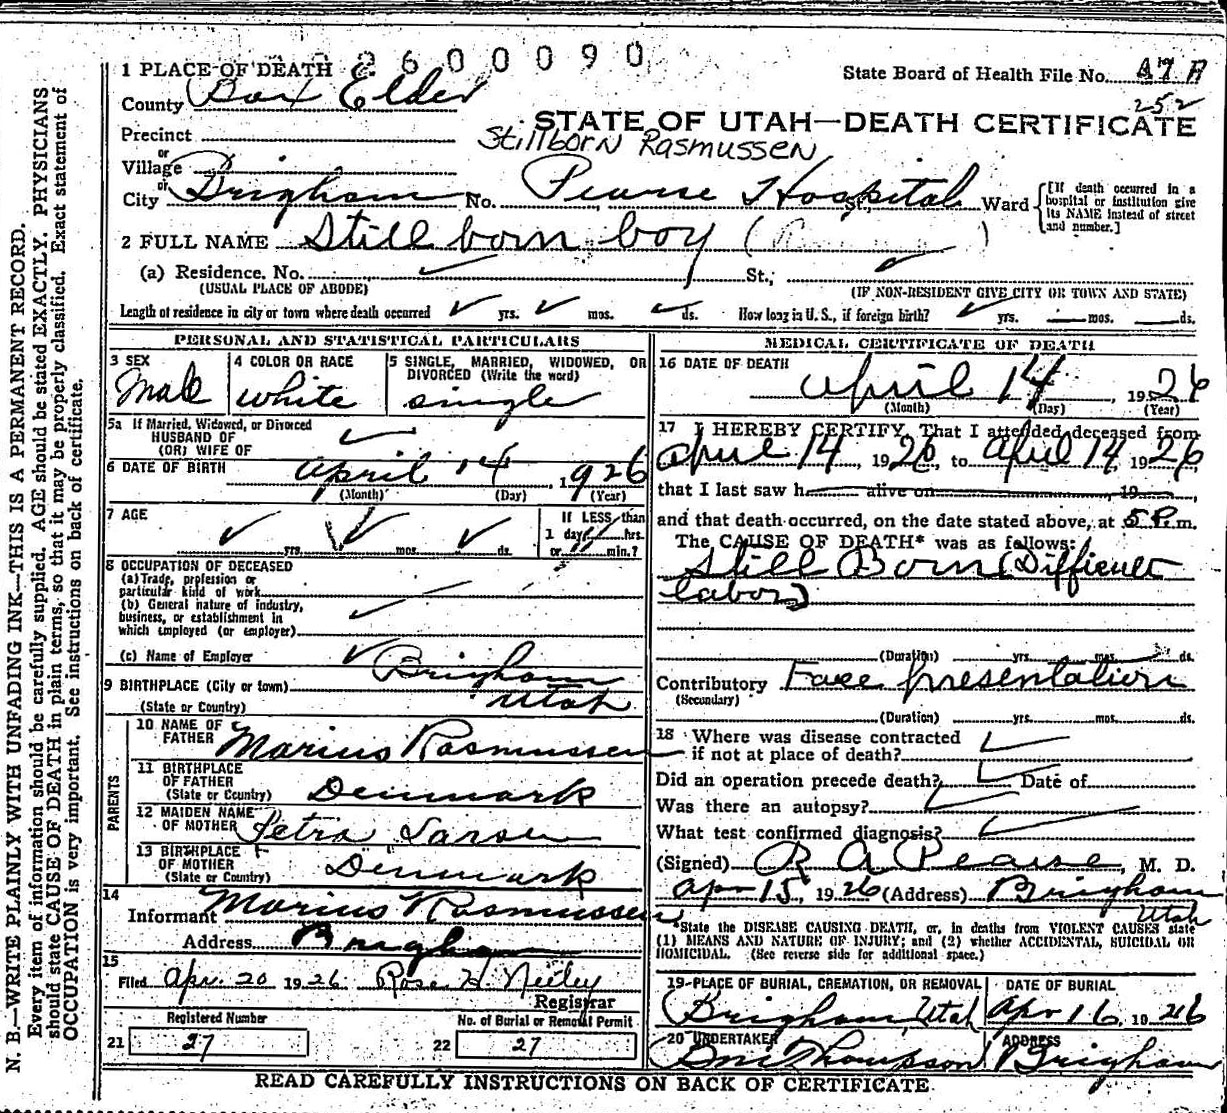 2600090
1 PLACE OF DEATH
State Board of Health File No. A7A
252
County Box Elder
STATE OF UTAH—DEATH CERTIFICATE
Precinct
Stillborn Rasmussen
or
Village
or
City Brigham No. Pearse Hospital St., Ward
[If death occurred in a hospital or institution give its NAME instead of street and number.]
2 FULL NAME Still born boy ( )
(a) Residence. No. St.,
(USUAL PLACE OF ABODE) (IF NON-RESIDENT GIVE CITY OR TOWN AND STATE)
Length of residence in city or town where death occurred yrs. mos. ds. How long in U. S., if foreign birth? yrs. mos. ds.
PERSONAL AND STATISTICAL PARTICULARS
3 SEX
Male
4 COLOR OR RACE
white
5 SINGLE, MARRIED, WIDOWED, OR
DIVORCED (Write the word)
single
5a If Married, Widowed, or Divorced
HUSBAND OF
(OR) WIFE OF
6 DATE OF BIRTH april 14, 1926
(Month) (Day) (Year)
7 AGE
yrs. mos. ds.
If LESS than
1 day hrs.
or min.?
8 OCCUPATION OF DECEASED
(a) Trade, profession or
particular kind of work
(b) General nature of industry,
business, or establishment in
which employed (or employer)
(c) Name of Employer
9 BIRTHPLACE (City or town) Brigham
(State or Country) Utah
PARENTS
10 NAME OF
FATHER Marius Rasmussen
11 BIRTHPLACE
OF FATHER
(State or Country) Denmark
12 MAIDEN NAME
OF MOTHER Petra Larsen
13 BIRTHPLACE
OF MOTHER
(State or Country) Denmark
14
Informant Marius Rasmussen
Address Brigham
15
Filed Apr. 20 1926 Rose H. Neeley
Registrar
Registered Number
21 27
No. of Burial or Removal Permit
22 27
MEDICAL CERTIFICATE OF DEATH
16 DATE OF DEATH
april 14, 1926
(Month) (Day) (Year)
17 I HEREBY CERTIFY, That I attended deceased from
april 14, 1926, to april 14 1926
that I last saw h alive on , 19 ,
and that death occurred, on the date stated above, at 5 P. m.
The CAUSE OF DEATH* was as follows:
Still Born (Difficult
labor)
(Duration) yrs. mos. ds.
Contributory Face presentation
(Secondary)
(Duration) yrs. mos. ds.
18 Where was disease contracted
if not at place of death?
Did an operation precede death? Date of
Was there an autopsy?
What test confirmed diagnosis?
(Signed) R A Pearse, M. D.
Apr 15, 1926 (Address) Brigham
Utah
*State the DISEASE CAUSING DEATH, or, in deaths from VIOLENT CAUSES state
(1) MEANS AND NATURE OF INJURY; and (2) whether ACCIDENTAL, SUICIDAL OR
HOMICIDAL. (See reverse side for additional space.)
19 PLACE OF BURIAL, CREMATION, OR REMOVAL
Brigham, Utah
DATE OF BURIAL
Apr 16 1926
20 UNDERTAKER
Thompson
ADDRESS
Brigham
READ CAREFULLY INSTRUCTIONS ON BACK OF CERTIFICATE
N. B.—WRITE PLAINLY WITH UNFADING INK—THIS IS A PERMANENT RECORD.
Every item of information should be carefully supplied. AGE should be stated EXACTLY. PHYSICIANS
should state CAUSE OF DEATH in plain terms, so that it may be properly classified. Exact statement of
OCCUPATION is very important. See instructions on back of certificate.